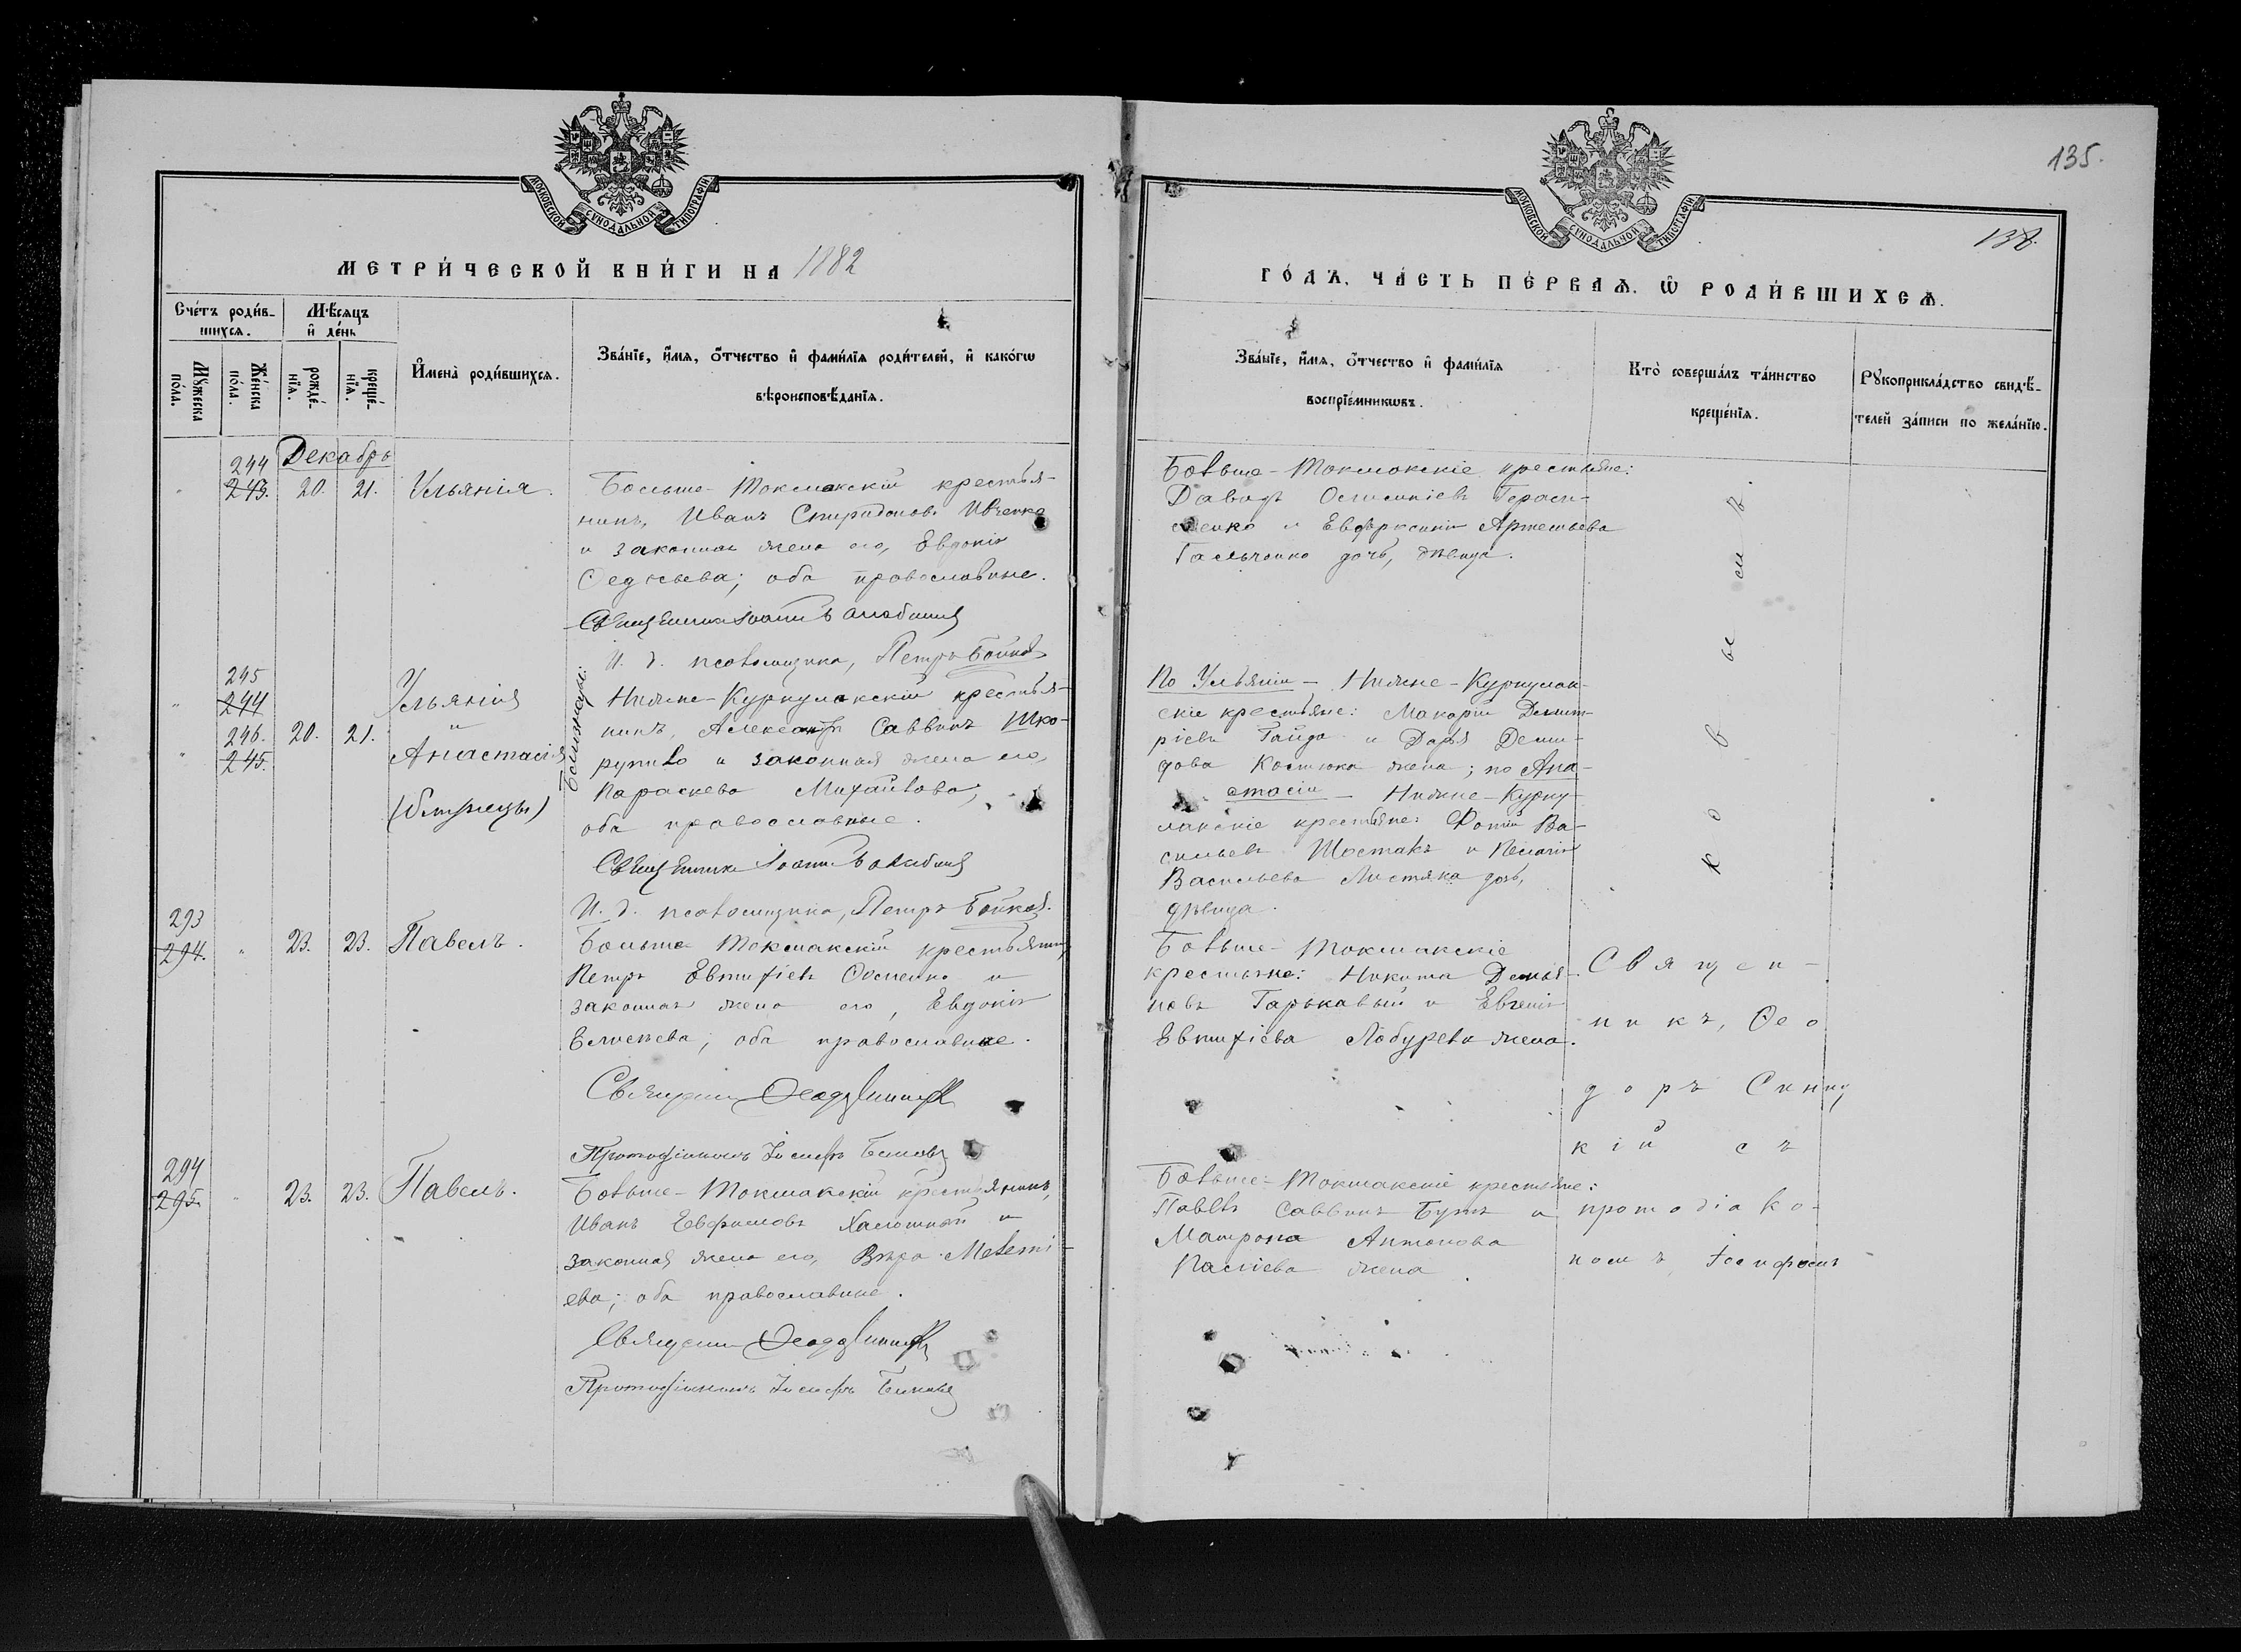 135.
138.
МОСКОВСКОЙ СѴНОДАЛЬНОЙ ТИПОГРАФІИ
МЕТРИ́ЧЕСКОЙ КНИ́ГИ НА 1882
Сче́тъ роди́в-
шихся.
Мѣ́сяцъ
и де́нь
Мꙋ́жеска
по́ла.
Же́нска
по́ла.
рожде́-
нїѧ.
креще́-
нїѧ.
И҆мена̀ роди́вшихсѧ.
Зва́нїе, и҆́мѧ, ѻ҆́тчество и҆ фами́лїѧ роди́телей, и҆ како́гѡ
вѣроисповѣ́данїѧ.
Декабрь
244
243.
20.
21.
Ульянія.
Больше-Токмакскій крестья-
нинъ, Иванъ Спиридоновъ Ивченко
и законная жена его, Евдокія
Федосьева; оба православные.
Священникъ Іоаннъ
И. д. псаломщика, Петръ Бойко
245
244
Ульянія
"
246.
245.
20.
21.
Анастасія
(близнецы)
Близнецы:
Нижне-Куркулакскій крестья-
нинъ, Александръ Саввинъ Шко-
рупило и законная жена его,
Параскева Михайлова,
оба православные.
Священникъ Іоаннъ
И. д. псаломщика, Петръ Бойко
293
294.
"
23.
23.
Павелъ.
Больше-Токмакскій крестьянинъ,
Петръ Евтихіевъ и
законная жена его, Евдокія
Елисеева; оба православные.
Священникъ Ѳеодоръ Синицкій
Протодіаконъ Іосифъ
294
295.
"
23.
23.
Павелъ.
Больше-Токмакскій крестьянинъ,
Иванъ Евфимовъ и
законная жена его, Вѣра Мелеті-
ева; оба православные.
Священникъ Ѳеодоръ Синицкій
Протодіаконъ Іосифъ
МОСКОВСКОЙ СѴНОДАЛЬНОЙ ТИПОГРАФІИ
ГО́ДЪ, ЧА́СТЬ ПЕ́РВАѦ, Ѡ҆ РОДИ́ВШИХСѦ.
Зва́нїе, и҆́мѧ, ѻ҆́тчество и҆ фами́лїѧ
воспрїе́мникѡвъ.
Кто̀ соверша́лъ та́инство
креще́нїѧ.
Рꙋкоприкла́дство свидѣ́-
телей за́писи по жела́нїю.
Больше-Токмакскіе крестьяне:
Давидъ Гераси-
менко и Евфросинія Артемьева
Гальченко дочь, дѣвица.
По Ульяніи - Нижне-Куркулак-
скіе крестьяне: Макарій Димит-
ріевъ Гайда и Дарья Деми-
дова Костюка жена; по Ана-
стасіи - Нижне-Курку-
лакскіе крестьяне: Фотій Ва-
сильевъ Шостакъ и Пелагія
Васильева Листяка дочь,
дѣвица.
ковымъ.
Больше-Токмакскіе
крестьяне: Никита Демья-
новъ Гарькавый и Евгенія
Евтихіева жена.
Священ-
никъ, Ѳео
доръ Синиц
кій съ
Больше-Токмакскіе крестьяне:
Павелъ Саввинъ Бутъ и
Матрона Антонова
жена.
протодіако-
номъ Іосифомъ